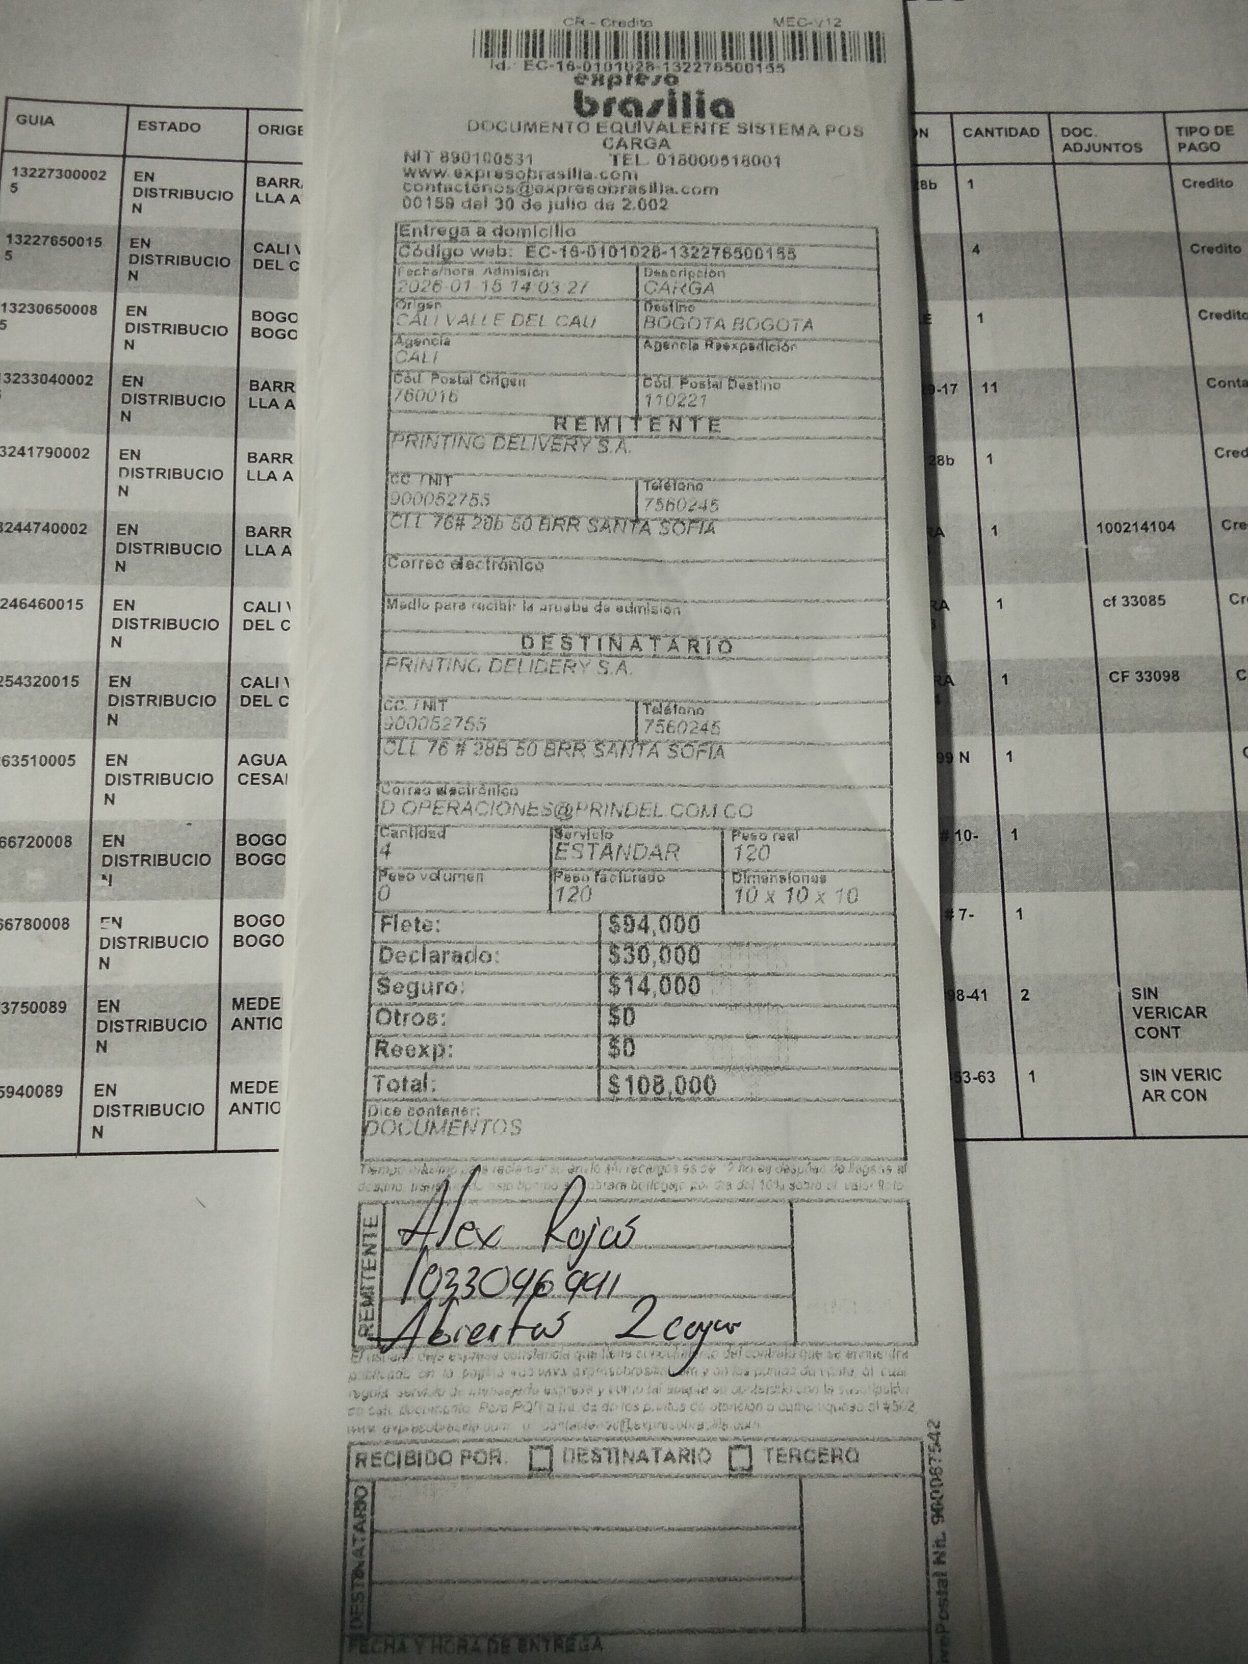 CR - Credito MEC-V12
Id.: EC-16-0101028-132276500155
expreso
brasilia
DOCUMENTO EQUIVALENTE SISTEMA POS
CARGA
NIT 890100531 TEL. 018000518001
www.expresobrasilia.com
contactenos@expresobrasilia.com
00159 del 30 de julio de 2.002
Entrega a domicilio
Código web: EC-16-0101028-132276500155
Fecha/hora Admisión Descripción
2026-01-15 14:03:27 CARGA
Origen Destino
CALI VALLE DEL CAU BOGOTA BOGOTA
Agencia Agencia Reexpedición
CALI
Cód. Postal Origen Cód. Postal Destino
760016 110221
REMITENTE
PRINTING DELIVERY S.A.
CC. / NIT Teléfono
900052755 7560245
CLL 76# 28b 50 BRR SANTA SOFIA
Correo electrónico
Medio para recibir la prueba de admisión
DESTINATARIO
PRINTING DELIDERY S.A.
CC. / NIT Teléfono
900052755 7560245
CLL 76 # 28B 50 BRR SANTA SOFIA
Correo electrónico
D.OPERACIONES@PRINDEL.COM.CO
Cantidad Servicio Peso real
4 ESTANDAR 120
Peso volumen Peso facturado Dimensiones
0 120 10 x 10 x 10
Flete: $94,000
Declarado: $30,000
Seguro: $14,000
Otros: $0
Reexp: $0
Total: $108,000
Dice contener:
DOCUMENTOS
REMITENTE
Alex Rojas
1033096991
Abiertas 2 cajas
RECIBIDO POR: DESTINATARIO TERCERO
DESTINATARIO
FECHA Y HORA DE ENTREGA
Postal Nit. 900087542
GUIA ESTADO ORIGE
13227300002 EN BARR
5 DISTRIBUCIO LLA A
N
13227650015 EN CALI V
5 DISTRIBUCIO DEL C
N
13230650008 EN BOGO
5 DISTRIBUCIO BOGO
N
3233040002 EN BARR
DISTRIBUCIO LLA A
N
3241790002 EN BARR
DISTRIBUCIO LLA A
N
3244740002 EN BARR
DISTRIBUCIO LLA A
N
246460015 EN CALI V
DISTRIBUCIO DEL C
N
254320015 EN CALI V
DISTRIBUCIO DEL C
N
63510005 EN AGUA
DISTRIBUCIO CESAI
N
66720008 EN BOGO
DISTRIBUCIO BOGO
N
66780008 EN BOGO
DISTRIBUCIO BOGO
N
3750089 EN MEDE
DISTRIBUCIO ANTIO
N
5940089 EN MEDE
DISTRIBUCIO ANTIO
N
N CANTIDAD DOC. ADJUNTOS TIPO DE PAGO
28b 1 Credito
4 Credito
E 1 Credito
9-17 11 Conta
28b 1 Cred
RA 1 100214104 Cre
RA 1 cf 33085 Cr
RA 1 CF 33098 C
99 N 1
# 10- 1
# 7- 1
98-41 2 SIN VERICAR CONT
53-63 1 SIN VERIC AR CON